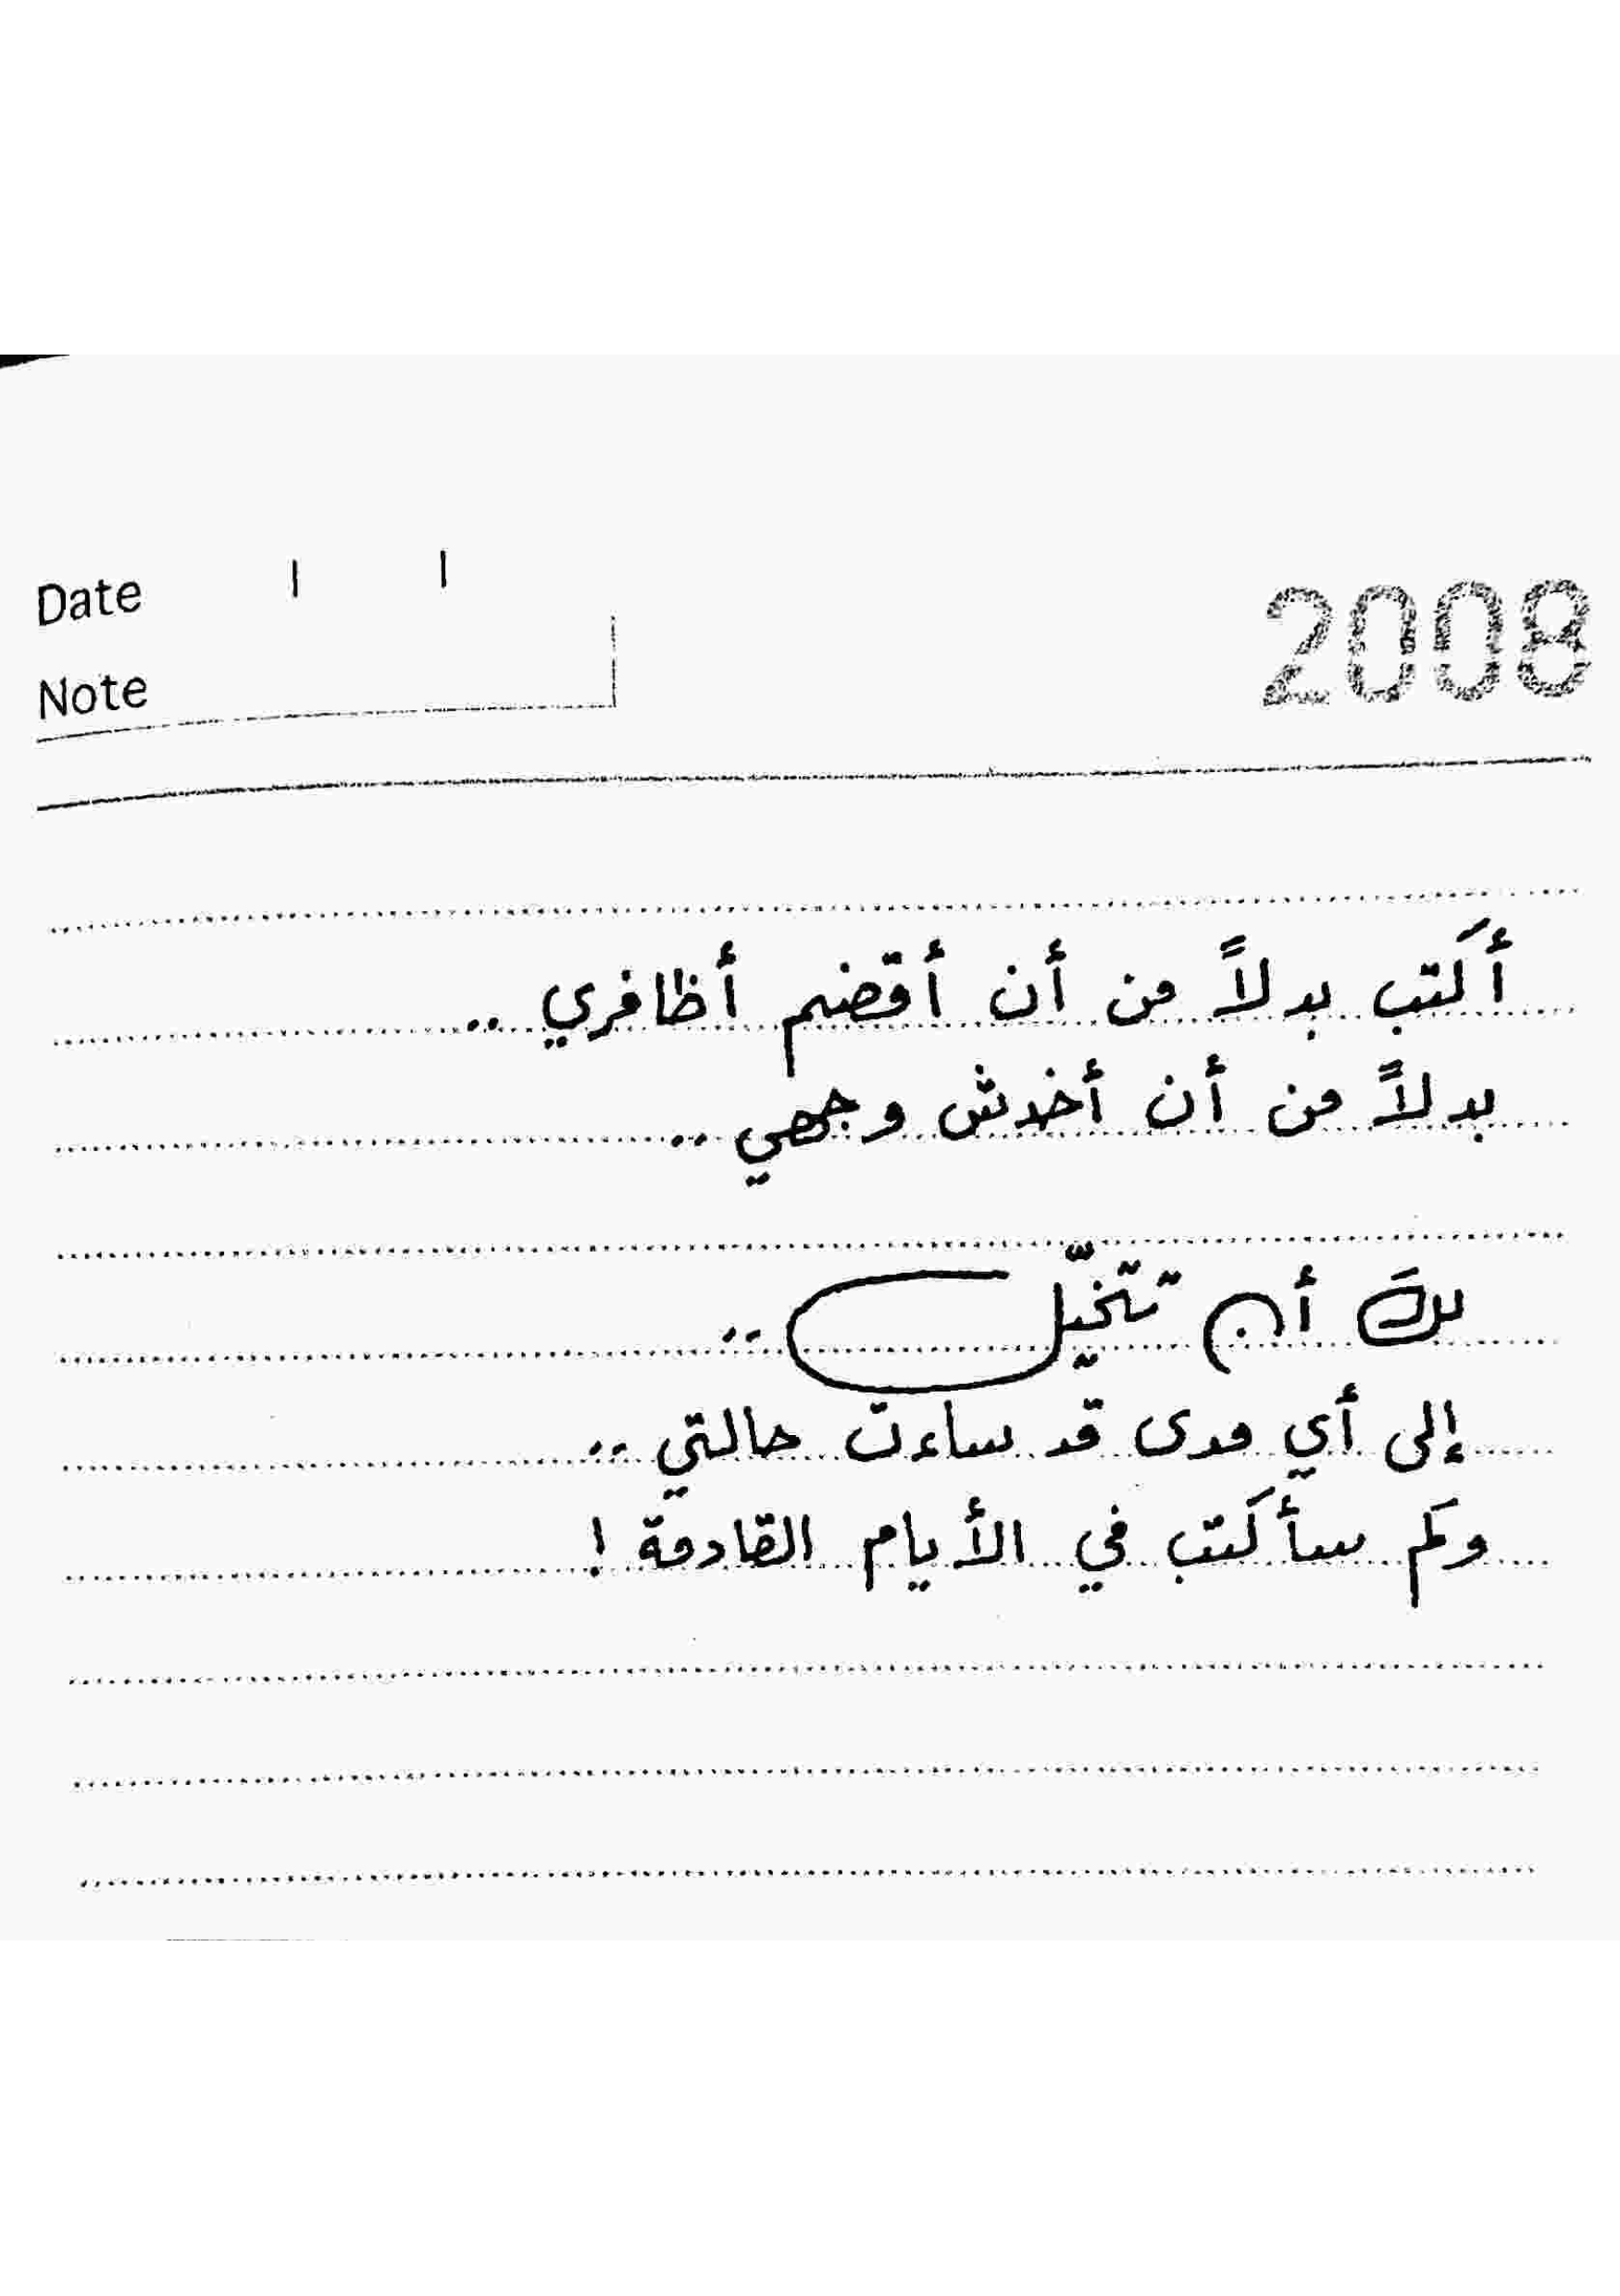 Date / /
2008
Note
أكتب بدلاً من أن أقضم أظافري ..
بدلاً من أن أخدش وجهي ..
لك أن تتخيّل ..
إلى أي مدى قد ساءت حالتي ..
وكم سأكتب في الأيام القادمة !